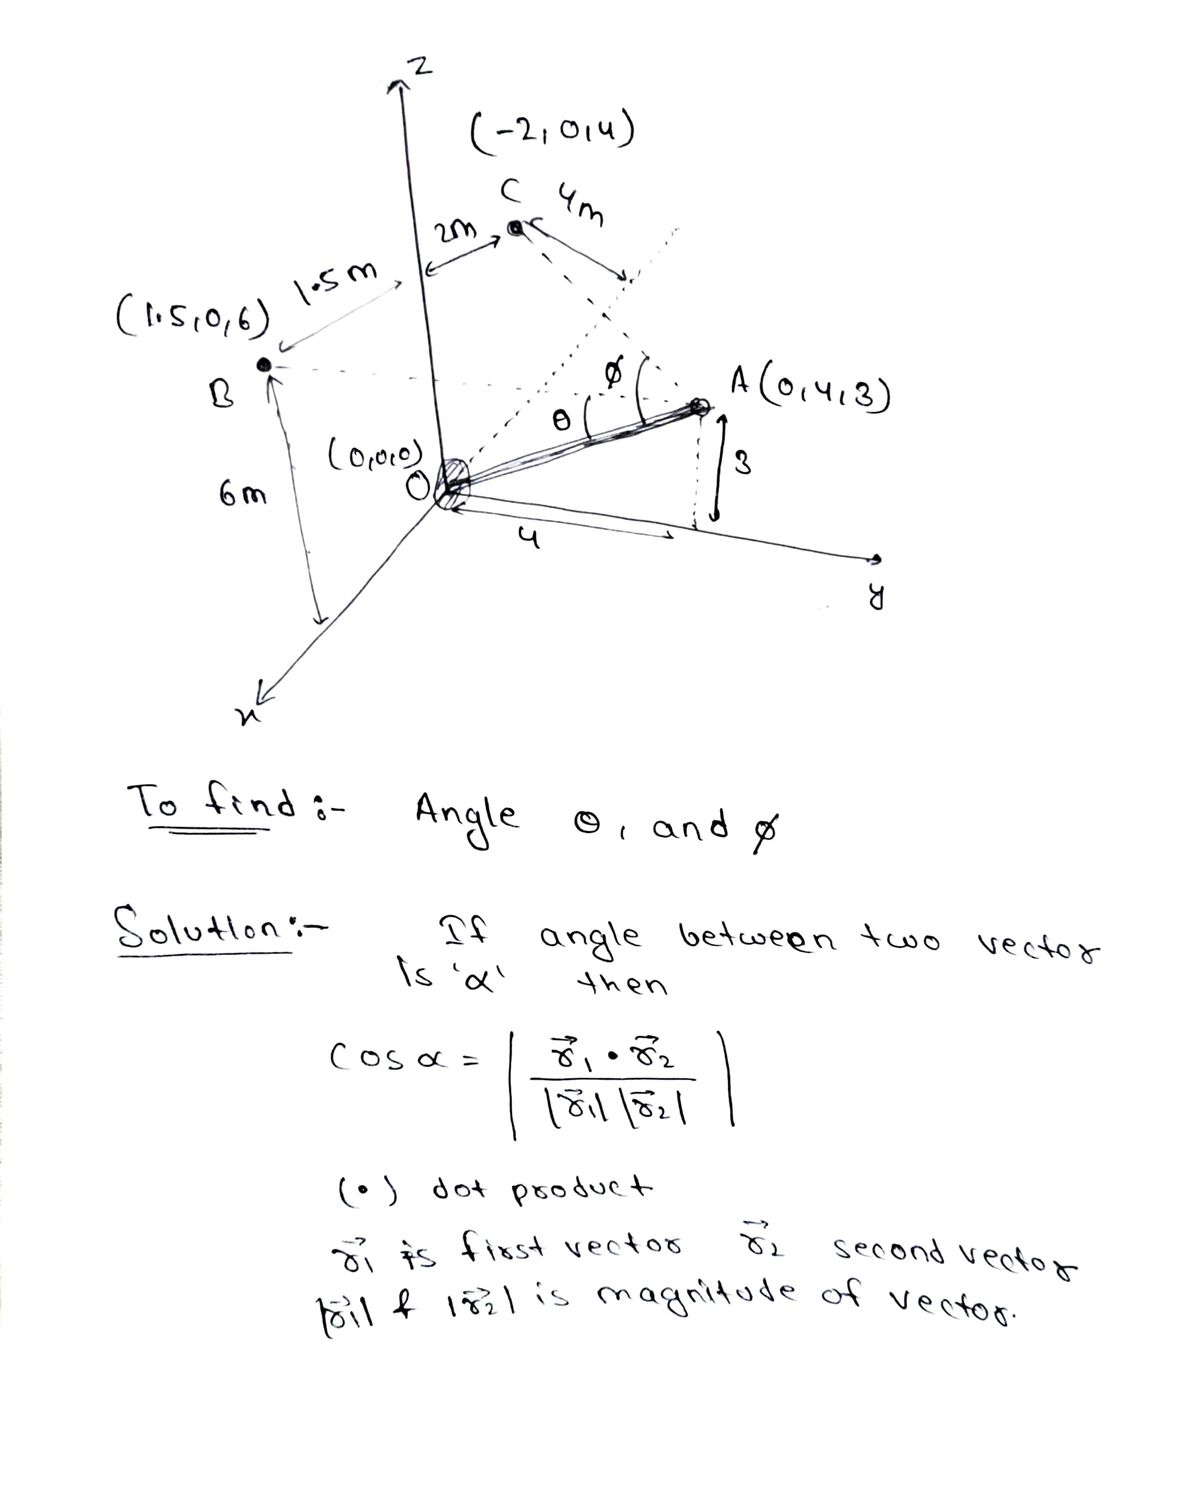 z
(-2,0,4)
C 4m
2m
1.5m
(1.5,0,6)
B
ϕ
A(0,4,3)
θ
(0,0,0)
O
3
6m
4
y
x
To find :- Angle θ, and ϕ
Solution :- If angle between two vector
is 'α' then
cos α = | r⃗₁ • r⃗₂ / |r⃗₁| |r⃗₂| |
(•) dot product
r⃗₁ is first vector r⃗₂ second vector
|r⃗₁| & |r⃗₂| is magnitude of vector.